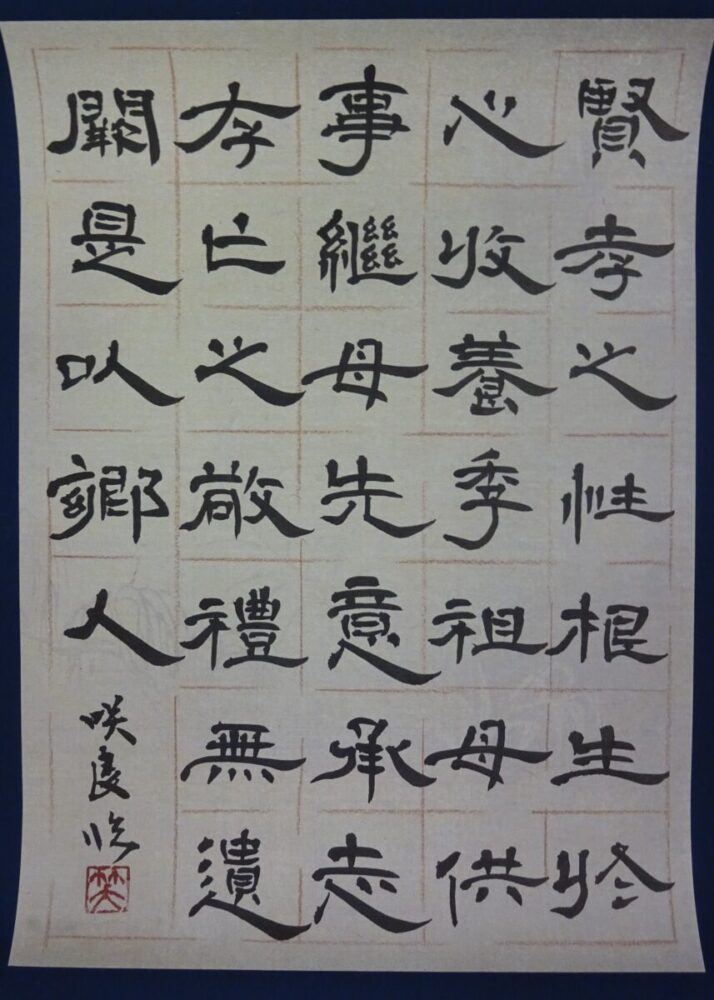 賢孝之性根生於
心收養季祖母供
事繼母先意承志
存亡之敬禮無遺
闕是以鄉人
咲良臨
笑